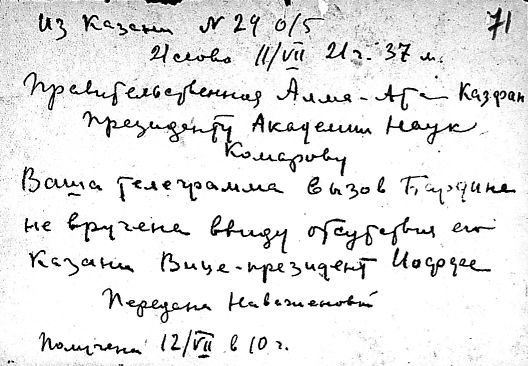 71
Из Казани N 29 0/5
21 слово 11/VII 21 ч. 37 м.
Правительственная Алма-Ата Казфан
Президенту Академии Наук
Комарову
Ваша телеграмма вызов Бардина
не вручена ввиду отсутствия его
Казани Вице-президент Иоффе
Передана
Получена 12/VII в 10 г.